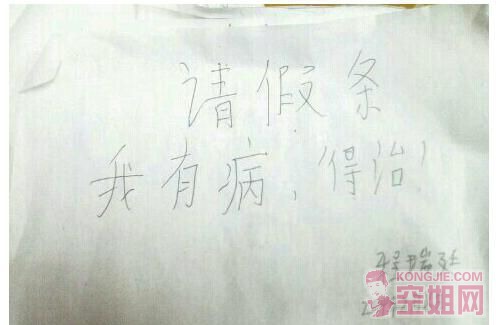 请假条
我有病,得治!
KONGJIE.COM
空姐网